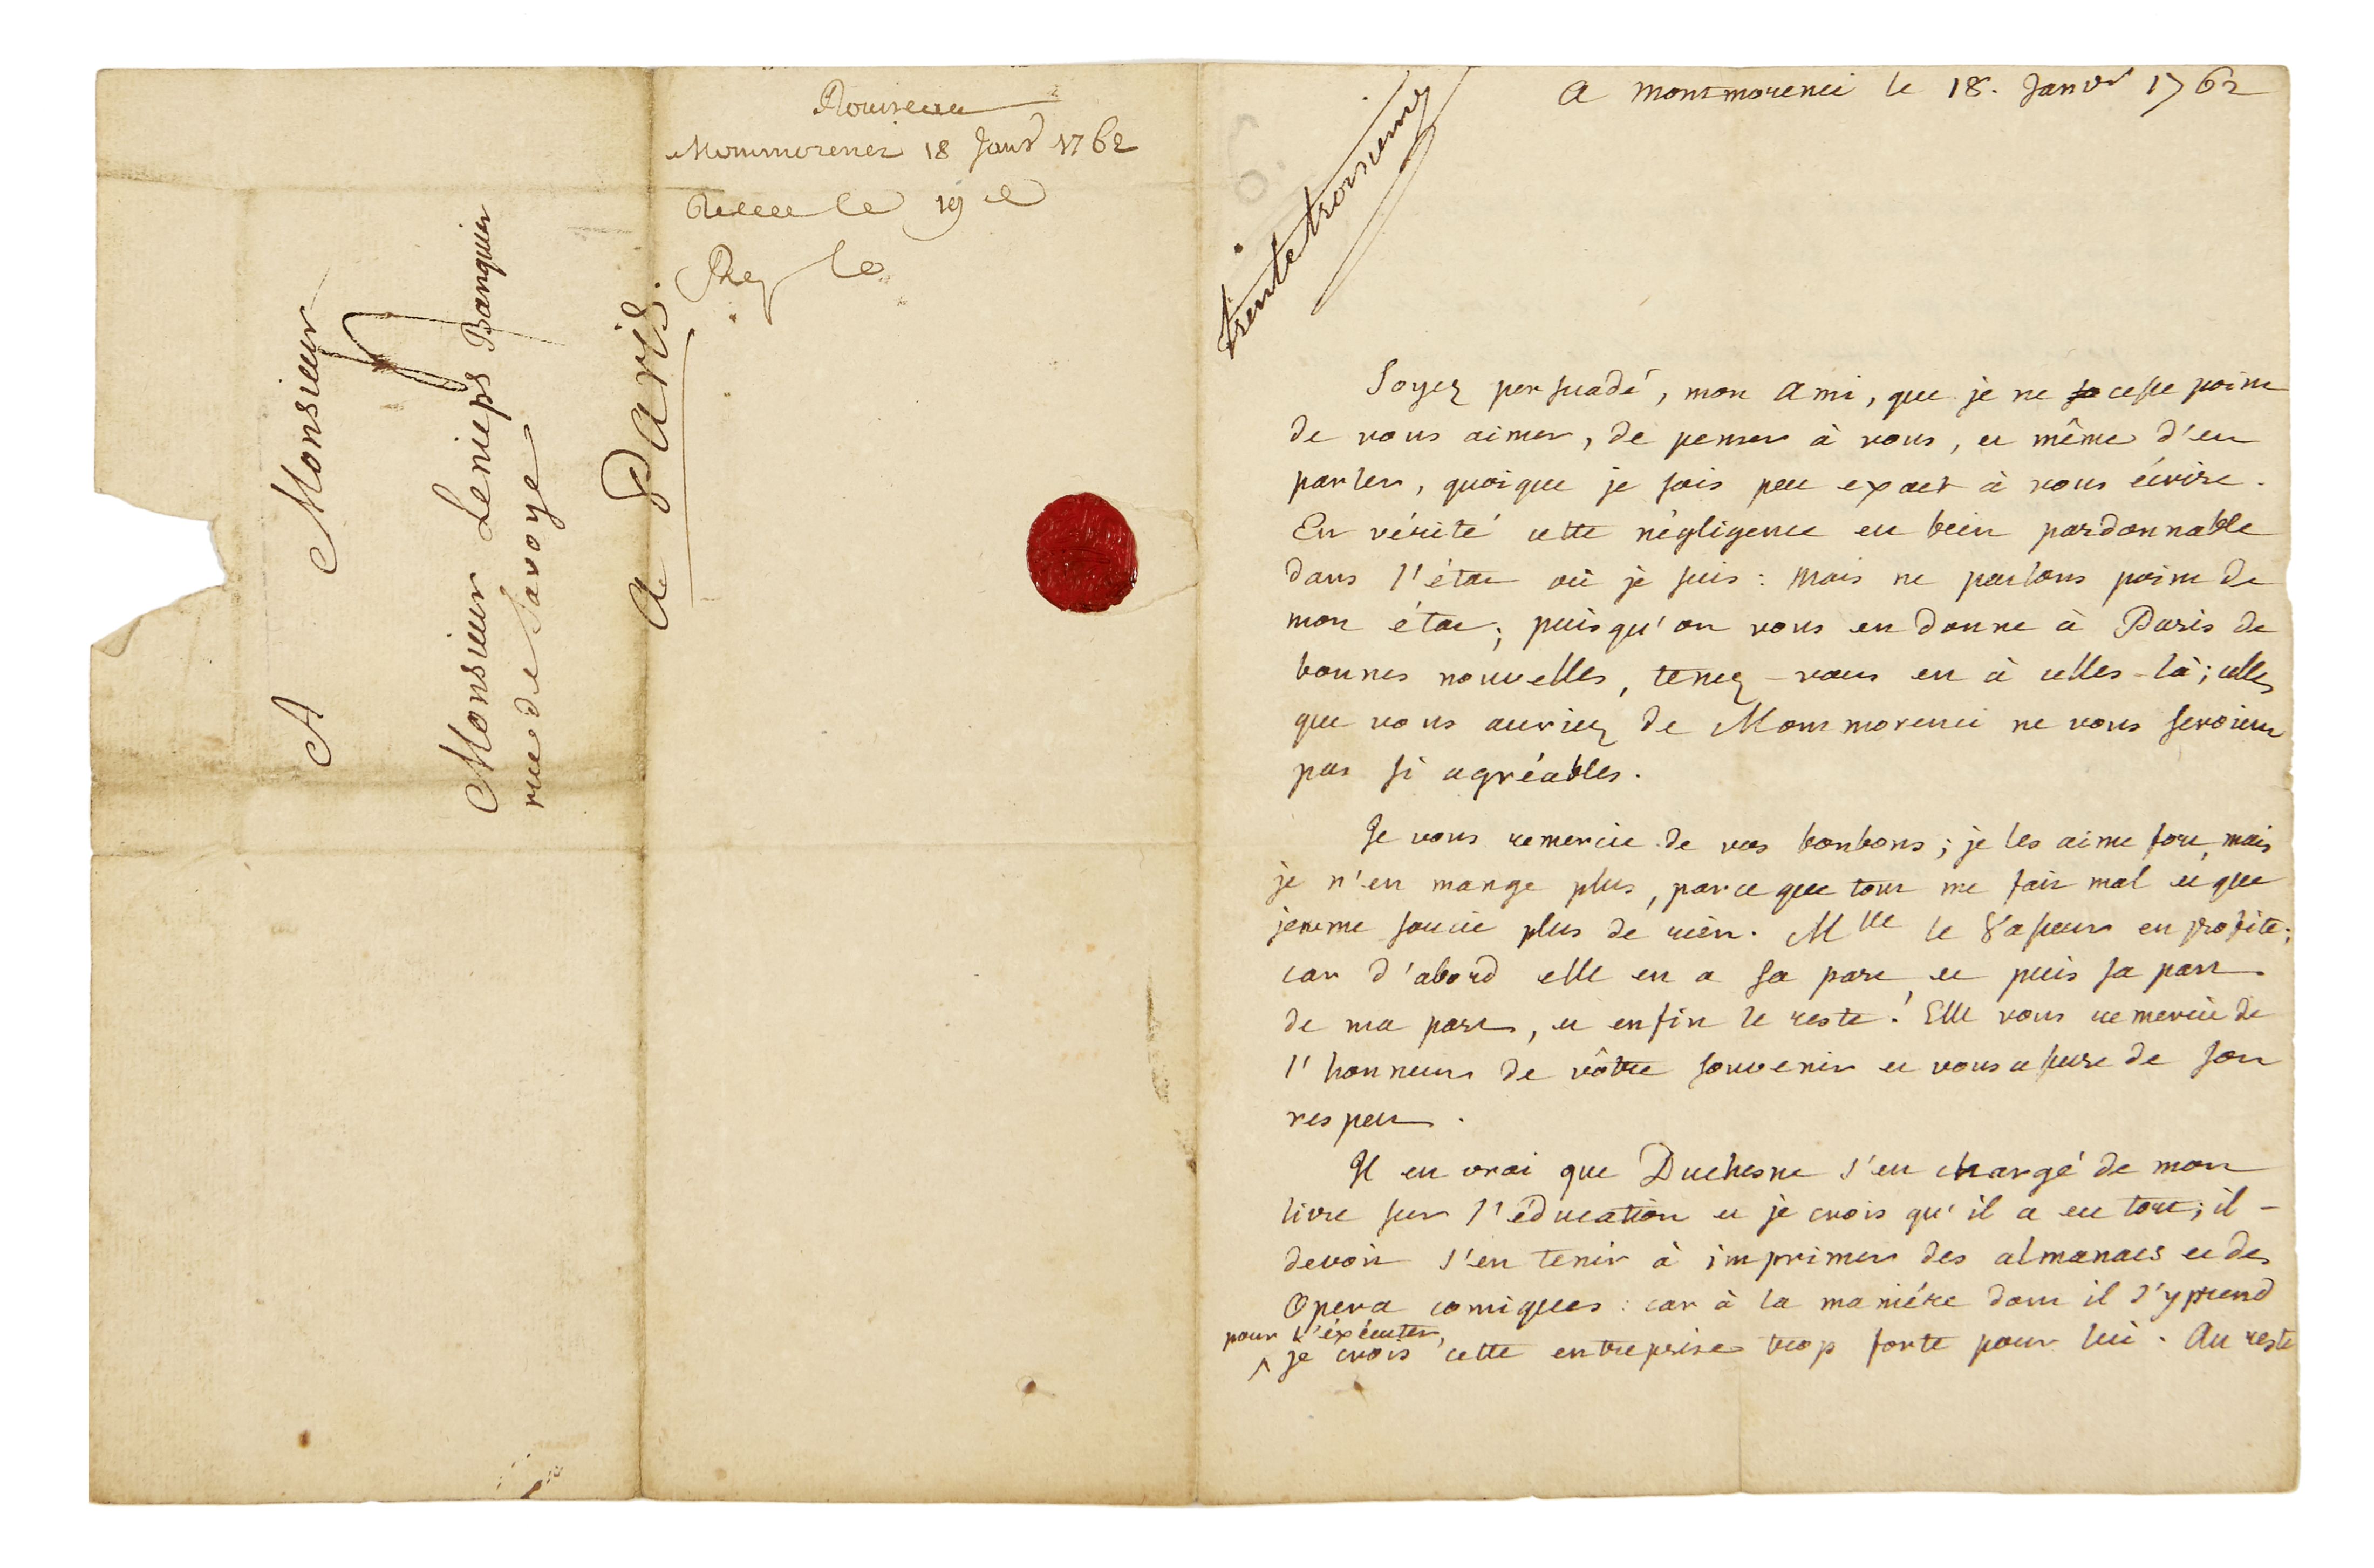 A Monsieur
Monsieur Lenieps Banquier
rue de Savoye
a Paris.
Rousseau
Montmorenci 18 Janvr 1762
Receu le 19 d
Rep le
trente troisieme
a Montmorenci le 18. Janvr 1762
Soyez persuadé, mon ami, que je ne cesse point
de vous aimer, de penser à vous, et même d'en
parler, quoique je sois peu exact à vous écrire.
En vérité cette négligence est bien pardonnable
dans l'état où je suis : mais ne parlons point de
mon état ; puisqu'on vous en donne à Paris de
bonnes nouvelles, tenez-vous en à celles-là ; celles
que vous auriez de Montmorenci ne vous seroient
pas si agréables.
Je vous remercie de vos bonbons ; je les aime fort, mais
je n'en mange plus, parce que tout me fait mal et que
je ne me soucie plus de rien. Mlle le Vasseur en profite ;
car d'abord elle en a sa part, et puis sa part
de ma part, et enfin le reste ! Elle vous remercie de
l'honneur de vôtre souvenir et vous assure de son
respect.
Il est vrai que Duchesne s'est chargé de mon
livre sur l'éducation et je crois qu'il a eu tort ; il
devoit s'en tenir à imprimer des almanacs et des
Opera comiques : car à la maniére dont il s'y prend
pour l'éxécuter,
^ je crois cette entreprise trop forte pour lui. Au reste